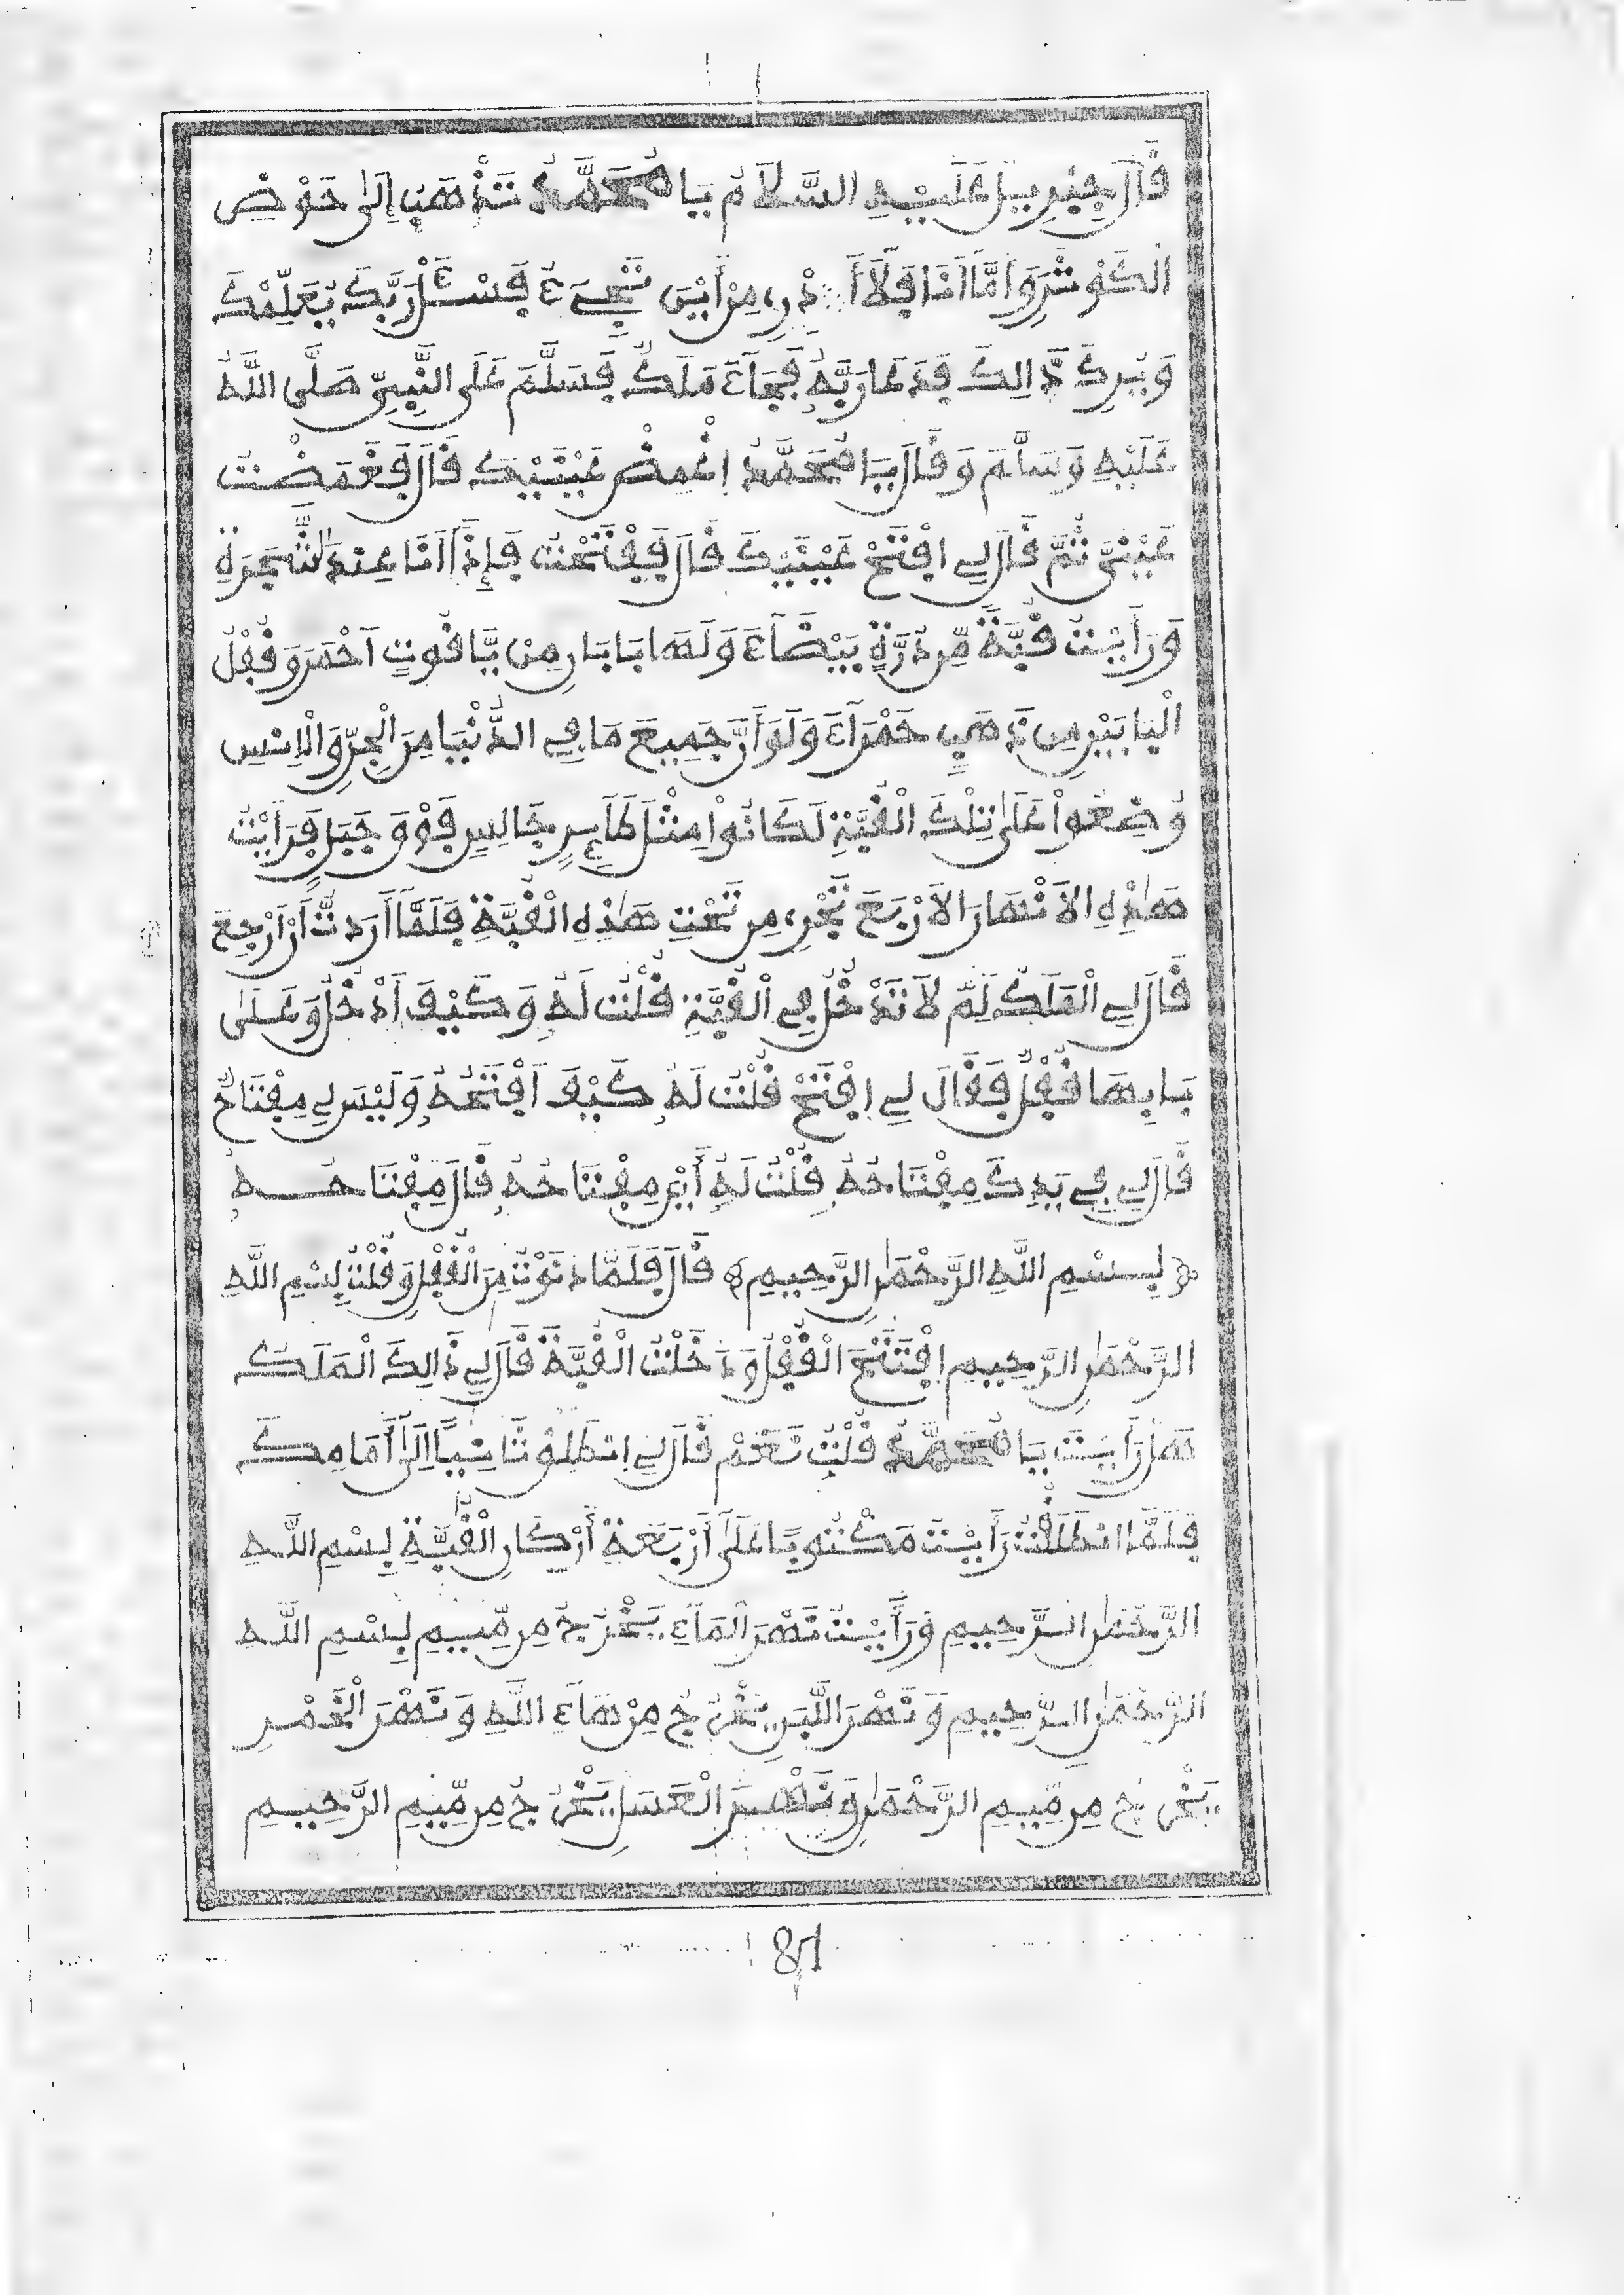 قَالَ جِبْرِيلُ عَلَيْهِ السَّلَامُ يَا مُحَمَّدُ تَذْهَبُ إِلَىٰ حَوْضِ
الْكَوْثَرِ وَأَمَّا أَنَا فَلَا أَدْرِي مِنْ أَيْنَ تَجِيءُ فَسْئَلْ رَبَّكَ يُعَلِّمْكَ
وَيُرِكَ ذَالِكَ فَدَعَا رَبَّهُ فَجَآءَ مَلَكٌ فَسَلَّمَ عَلَى النَّبِيِّ صَلَّى اللَّهُ
عَلَيْهِ وَسَلَّمَ وَقَالَ يَا مُحَمَّدُ اِغْمِضْ عَيْنَيْكَ قَالَ فَغَمَضْتُ
عَيْنَيَّ ثُمَّ قَالَ لِي افْتَحْ عَيْنَيْكَ قَالَ فَفَتَحْتُ فَإِذَا أَنَا عِنْدَ الشَّجَرَةِ
وَرَأَيْتُ قُبَّةً مِّن دُرَّةٍ بَيْضَآءَ وَلَهَا بَابَانِ مِنْ يَّاقُوتٍ اَحْمَرَ وَقُفْلُ
الْبَابَيْنِ مِن ذَهَبٍ حَمْرَآءَ وَلَوْ أَنَّ جَمِيعَ مَا فِي الدُّنْيَا مِنَ الْجِنِّ وَالْاِنْسِ
وُضِعُواْ عَلَىٰ تِلْكَ الْقُبَّةِ لَكَانُواْ مِثْلَ طَآئِرٍ جَالِسٍ فَوْقَ جَبَلٍ فَرَأَيْتُ
هَٰذِهِ الْاَنْهَارَ الْاَرْبَعَ تَجْرِي مِن تَحْتِ هَٰذِهِ الْقُبَّةِ فَلَمَّا أَرَدتُّ أَنْ أَرْجِعَ
قَالَ لِي الْمَلَكُ لِمَ لَا تَدْخُلُ فِي الْقُبَّةِ قُلْتُ لَهُ وَكَيْفَ اَدْخُلُ وَعَلَىٰ
بَابِهَا قُفْلٌ فَقَالَ لِي اِفْتَحْ قُلْتُ لَهُ كَيْفَ اَفْتَحُهُ وَلَيْسَ لِي مِفْتَاحٌ
قَالَ لِي فِي يَدِكَ مِفْتَاحُهُ قُلْتُ لَهُ أَيْنَ مِفْتَاحُهُ قَالَ مِفْتَاحُهُ
﴿بِسْمِ اللَّهِ الرَّحْمَٰنِ الرَّحِيمِ﴾ قَالَ فَلَمَّا دَنَوْتُ مِنَ الْقُفْلِ وَقُلْتُ بِسْمِ اللَّهِ
الرَّحْمَٰنِ الرَّحِيمِ اِفْتَتَحَ الْقُفْلُ وَدَخَلْتُ الْقُبَّةَ قَالَ لِي ذَالِكَ الْمَلَكُ
هَلْ رَأَيْتَ يَا مُحَمَّدُ قُلْتُ نَعَمْ قَالَ لِي اِنطَلِقْ ثَانِيًا اِلَىٰ أَمَامِكَ
فَلَمَّا انطَلَقْتُ رَأَيْتُ مَكْتُوبًا عَلَىٰ أَرْبَعَةِ أَرْكَانِ الْقُبَّةِ بِسْمِ اللَّهِ
الرَّحْمَٰنِ الرَّحِيمِ وَرَأَيْتُ نَهْرَ الْمَآءِ يَخْرُجُ مِن مِّيمِ بِسْمِ اللَّهِ
الرَّحْمَٰنِ الرَّحِيمِ وَنَهْرَ اللَّبَنِ يَخْرُجُ مِنْ هَآءِ اللَّهِ وَنَهْرَ الْخَمْرِ
يَخْرُجُ مِن مِّيمِ الرَّحْمَٰنِ وَنَهْرَ الْعَسَلِ يَخْرُجُ مِن مِّيمِ الرَّحِيمِ